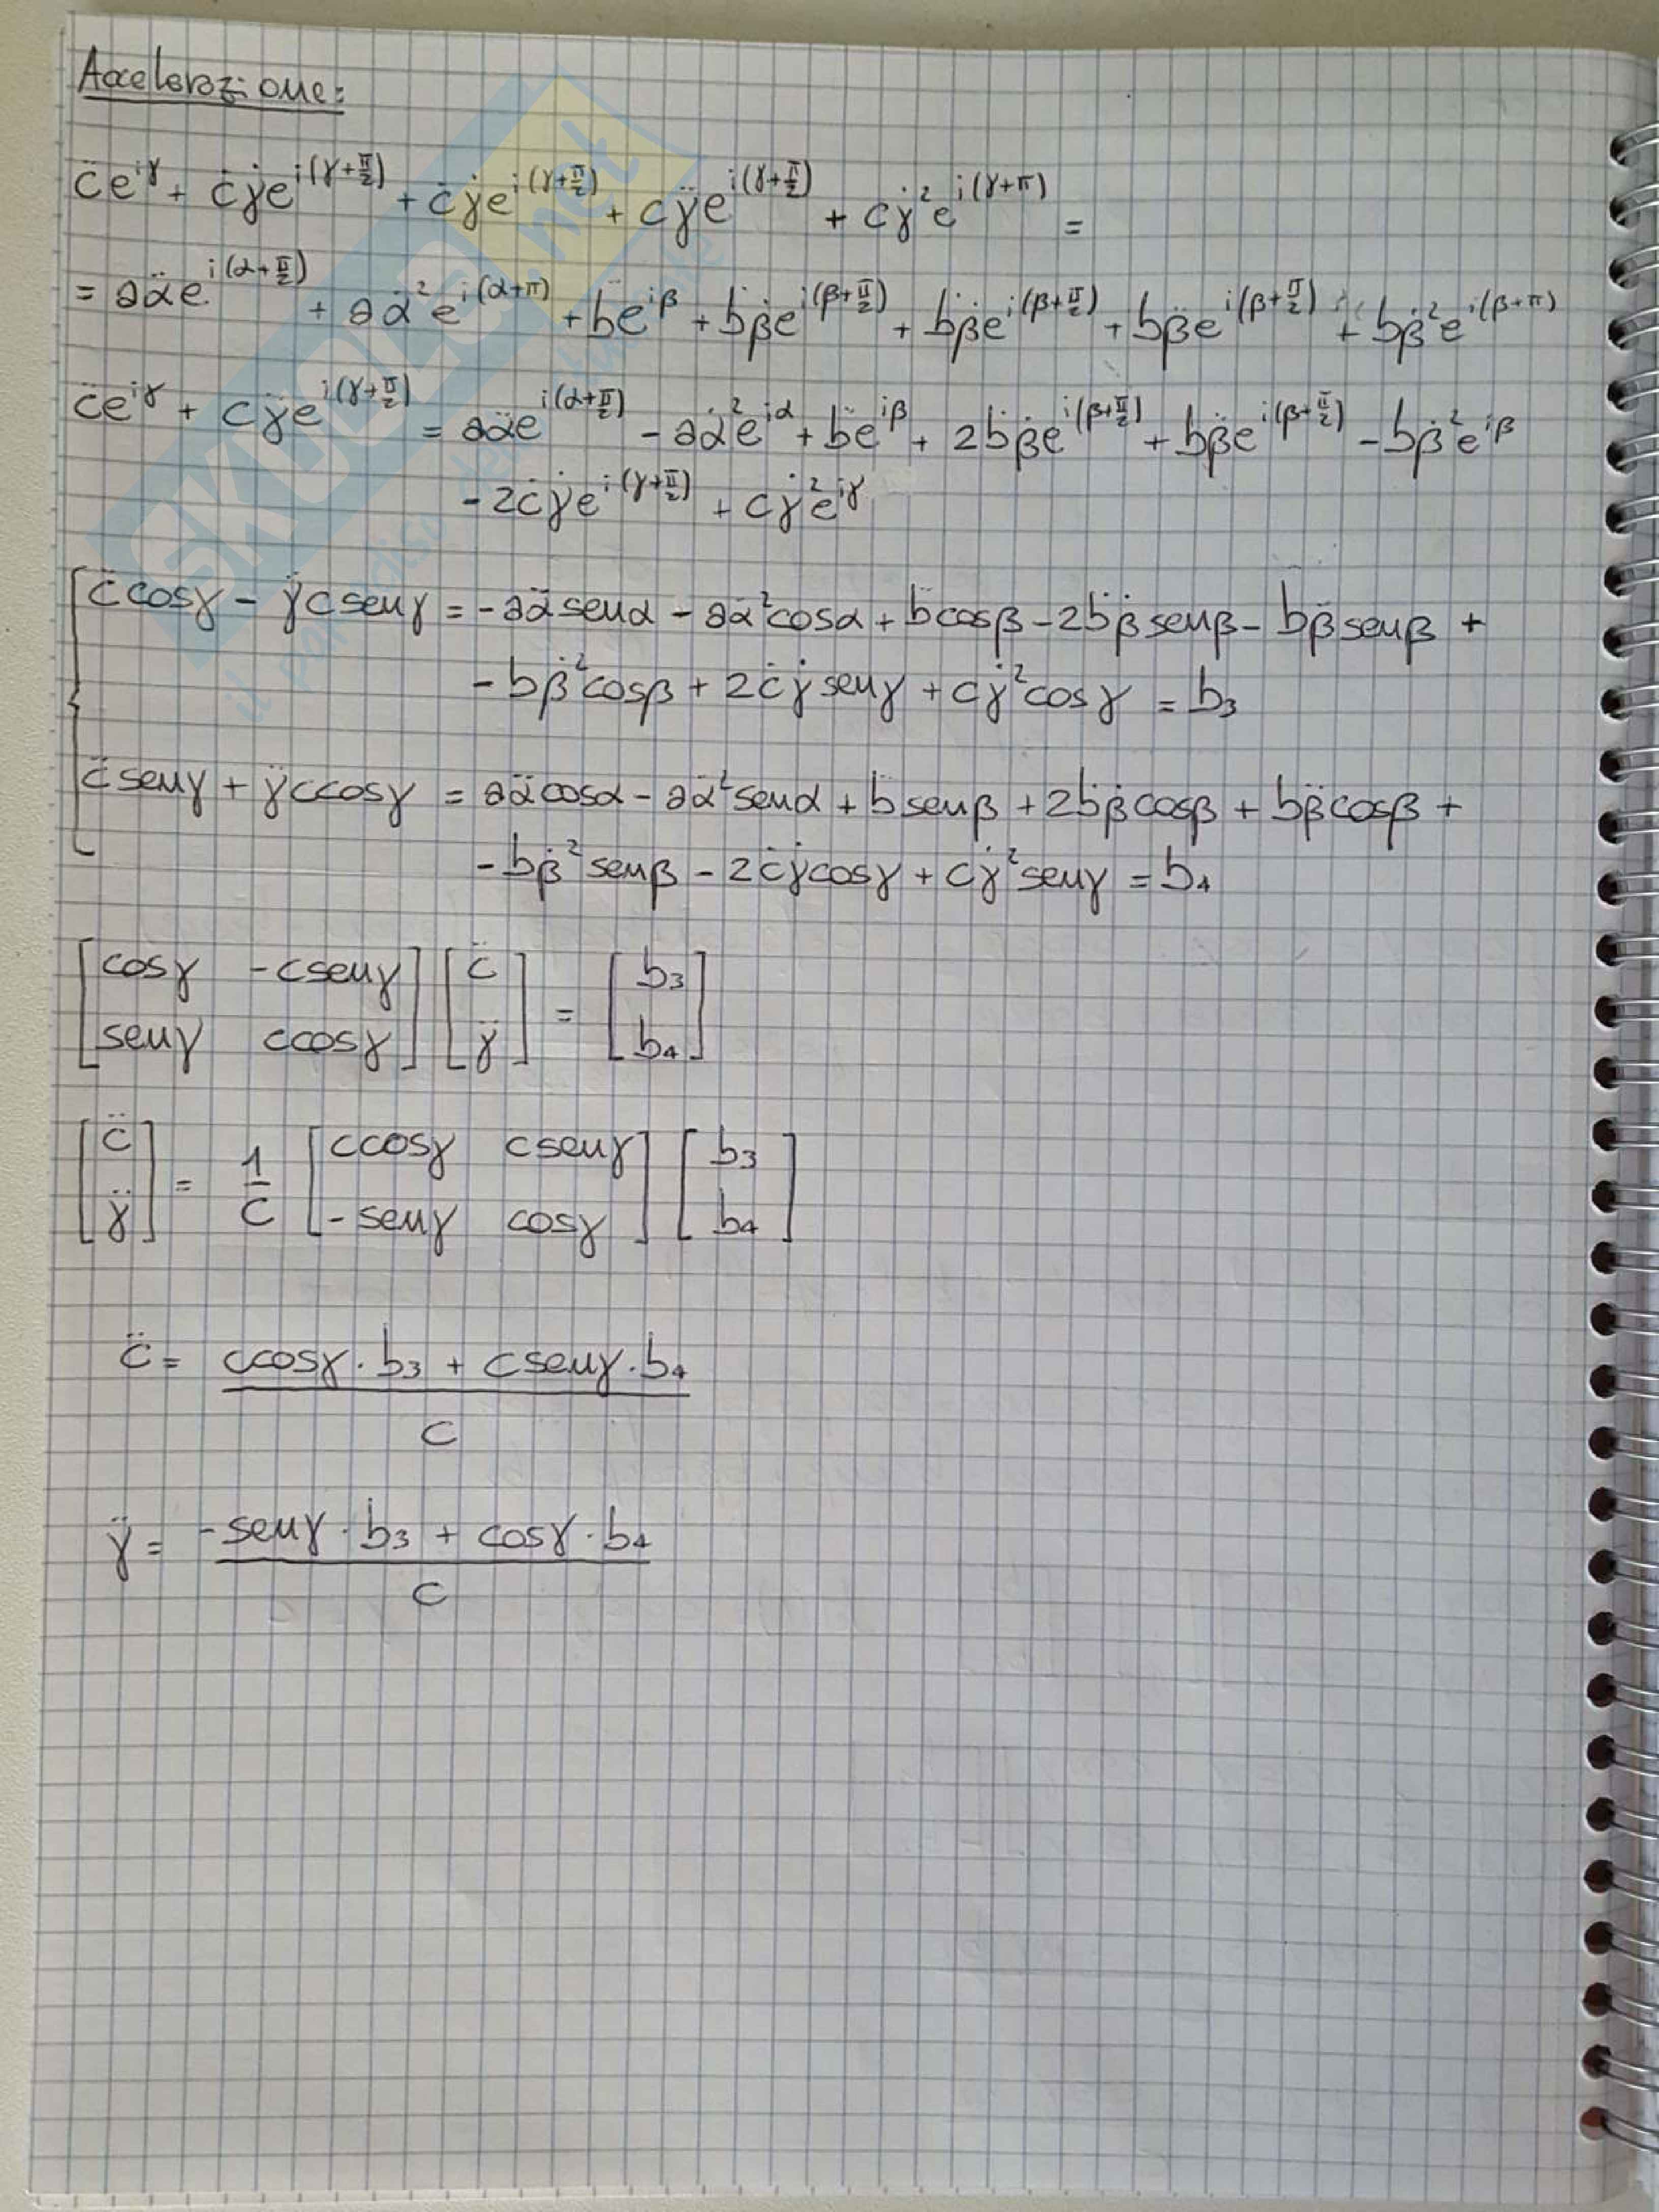 Accelerazione:
c̈e^{iγ} + ċγ̇e^{i(γ+π/2)} + ċγ̇e^{i(γ+π/2)} + cγ̈e^{i(γ+π/2)} + cγ̇²e^{i(γ+π)} =
= aα̈e^{i(α+π/2)} + aα̇²e^{i(α+π)} + b̈e^{iβ} + ḃβ̇e^{i(β+π/2)} + ḃβ̇e^{i(β+π/2)} + bβ̈e^{i(β+π/2)} + bβ̇²e^{i(β+π)}
c̈e^{iγ} + cγ̈e^{i(γ+π/2)} = aα̈e^{i(α+π/2)} - aα̇²e^{iα} + b̈e^{iβ} + 2ḃβ̇e^{i(β+π/2)} + bβ̈e^{i(β+π/2)} - bβ̇²e^{iβ}
- 2ċγ̇e^{i(γ+π/2)} + cγ̇²e^{iγ}
c̈cosγ - γ̈csenγ = -aα̈senα - aα̇²cosα + b̈cosβ - 2ḃβ̇senβ - bβ̈senβ +
- bβ̇²cosβ + 2ċγ̇senγ + cγ̇²cosγ = b₃
c̈senγ + γ̈ccosγ = aα̈cosα - aα̇²senα + b̈senβ + 2ḃβ̇cosβ + bβ̈cosβ +
- bβ̇²senβ - 2ċγ̇cosγ + cγ̇²senγ = b₄
[cosγ -csenγ] [c̈] = [b₃]
[senγ ccosγ] [γ̈] [b₄]
[c̈] = 1/c [ccosγ csenγ] [b₃]
[γ̈] [-senγ cosγ] [b₄]
c̈ = ccosγ · b₃ + csenγ · b₄
c
γ̈ = -senγ · b₃ + cosγ · b₄
c
SKUOLA.net
il paradiso dello studente